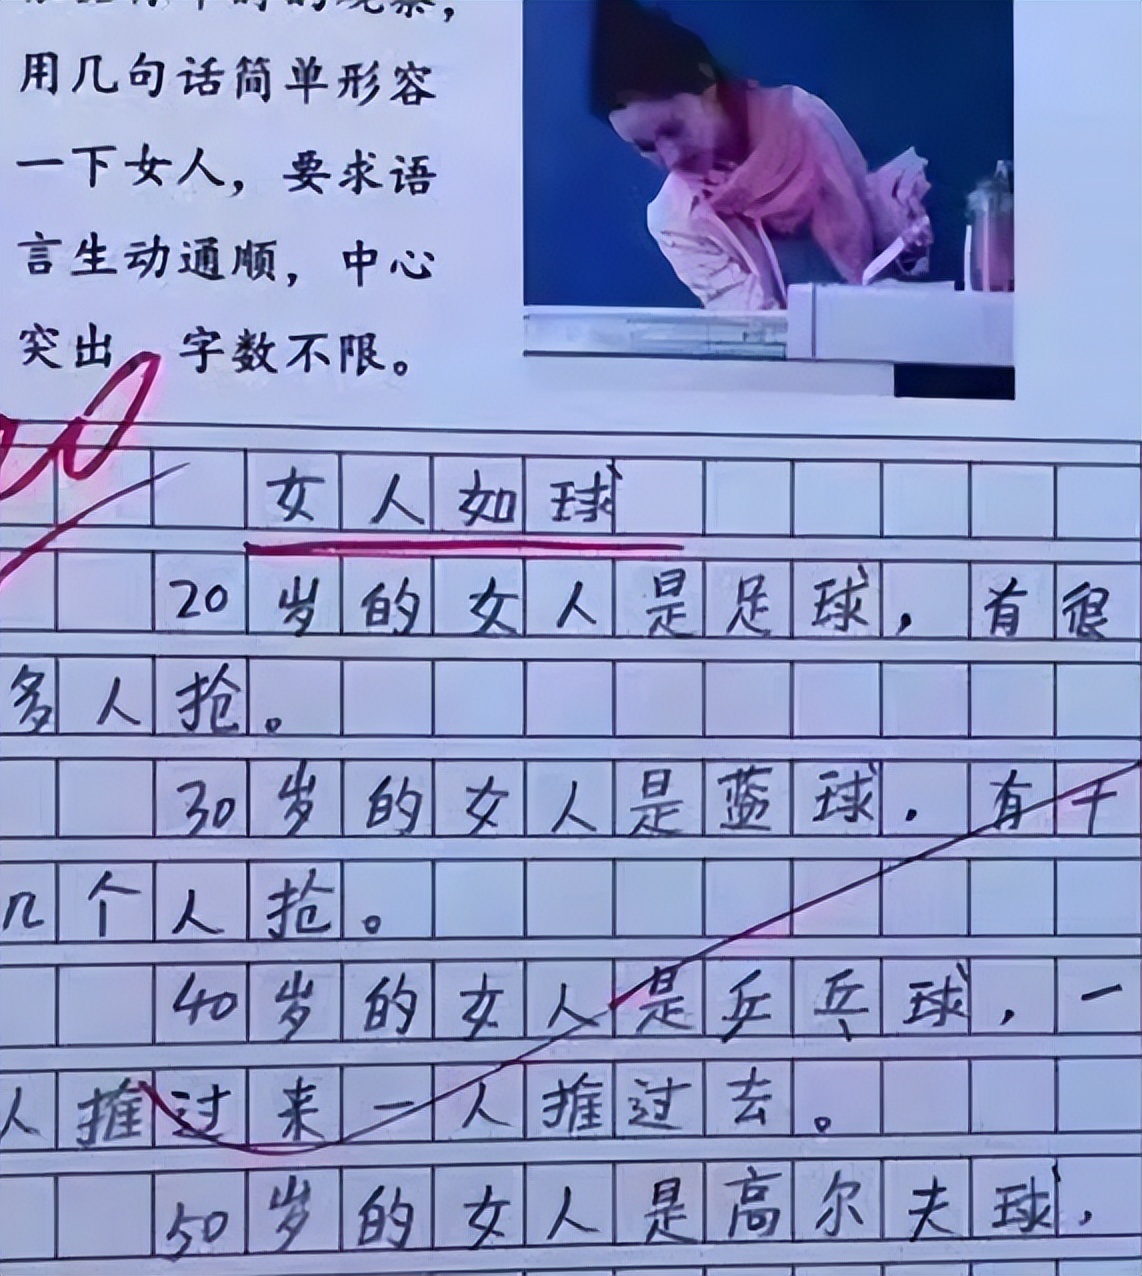 时的观察，
用几句话简单形容
一下女人，要求语
言生动通顺，中心
突出，字数不限。
女人如球
20岁的女人是足球，有很
多人抢。
30岁的女人是蓝球．有十
几个人抢。
40岁的女人是乒乓球，一
人推过来一人推过去。
50岁的女人是高尔夫球，